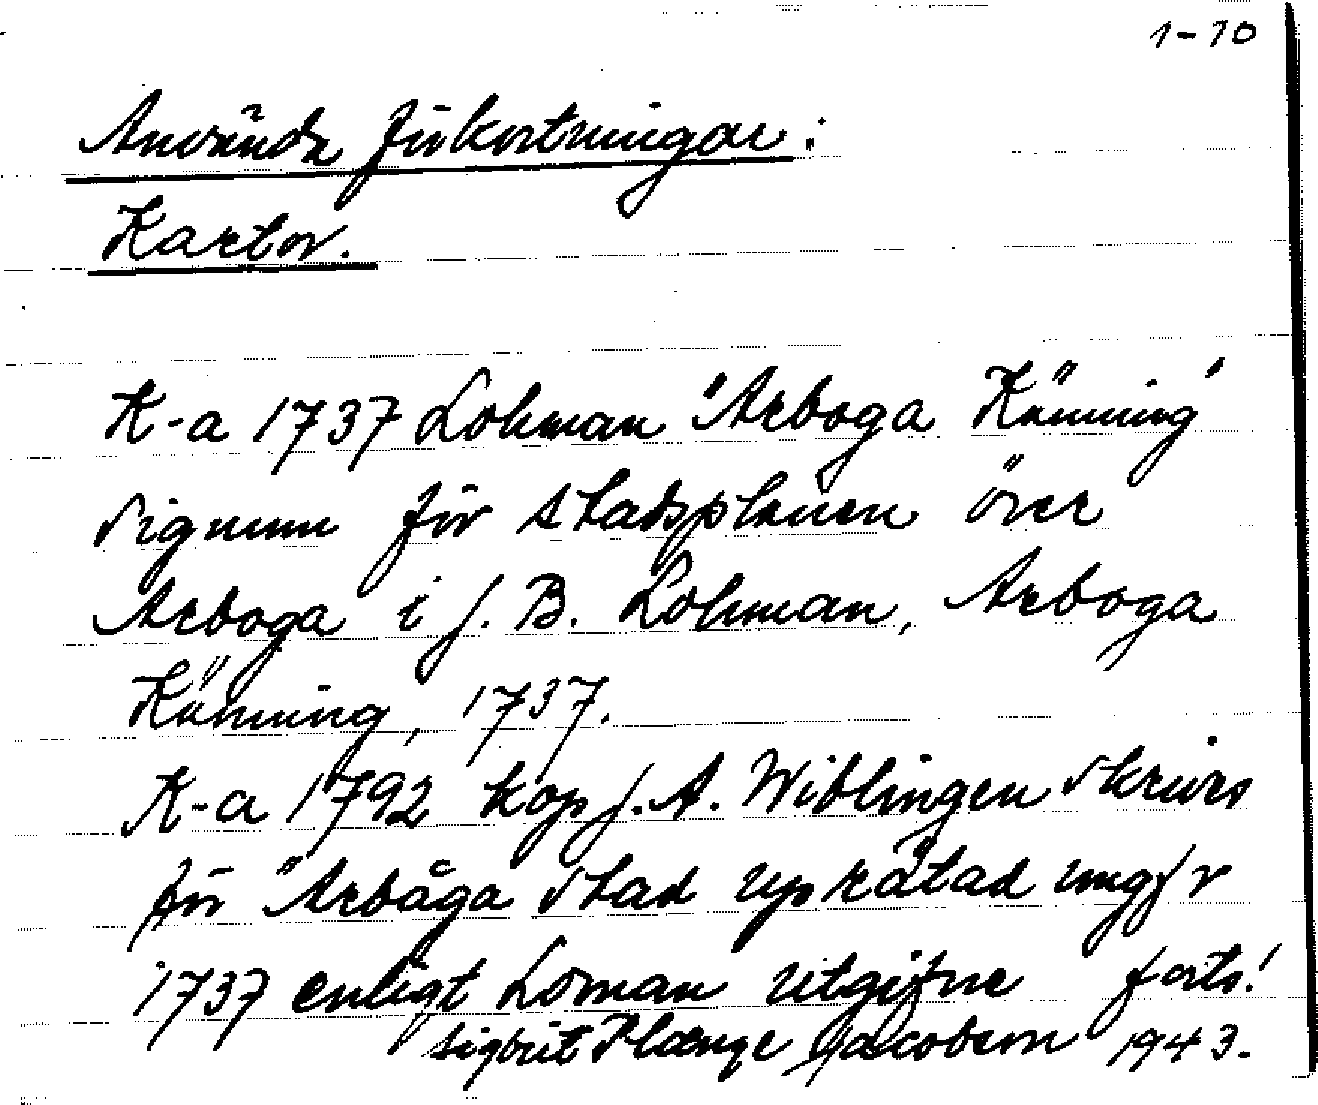 1-10
Använda förkortningar:
Kartor.
K-a 1737 Lohman "Arboga Känning"
Signum för stadsplanen över
Arboga i J. B. Lohman, Arboga
Känning, 1737.
K-a 1792 kop J. A. Wiblingen
för "Arbåga stad uprätad ungf r
1737 enligt Loman utgifne forts!
Sigbrit Plænge Jacobson 1943.